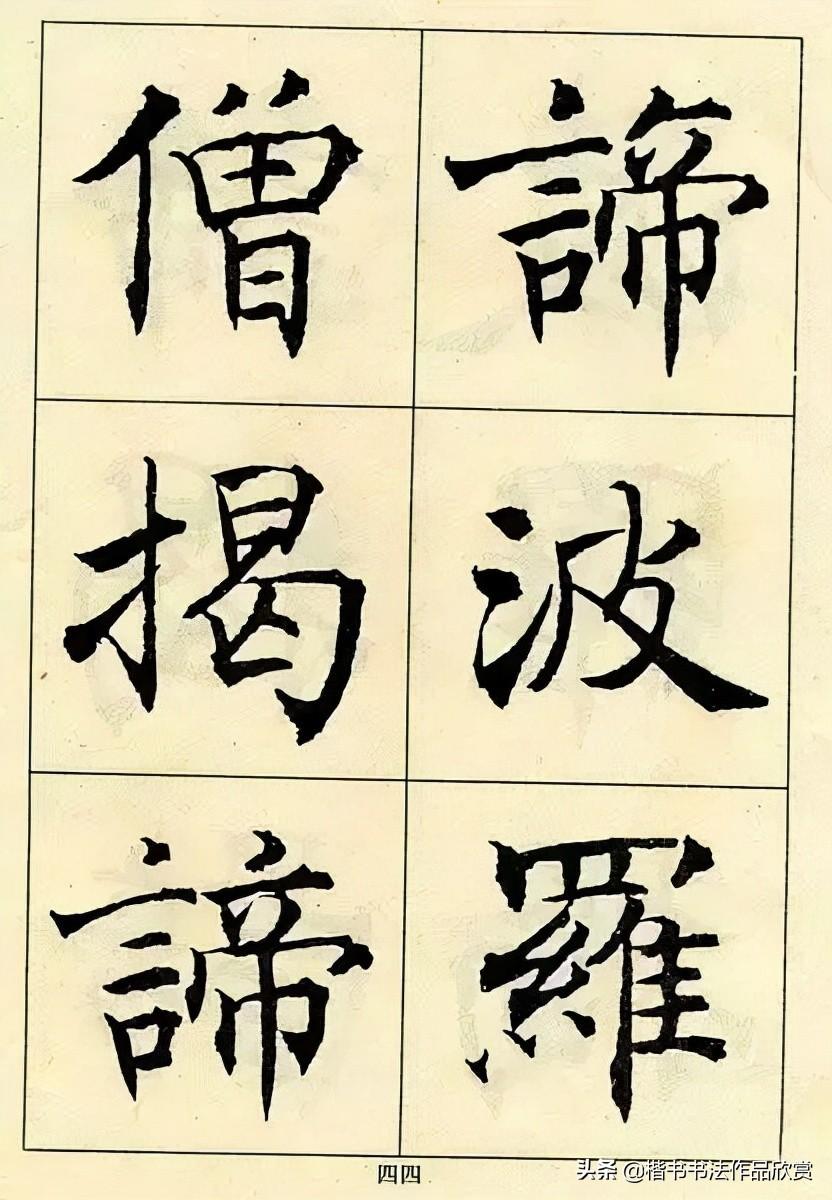 諦波羅
僧揭諦
四四
头条 @楷书书法作品欣赏